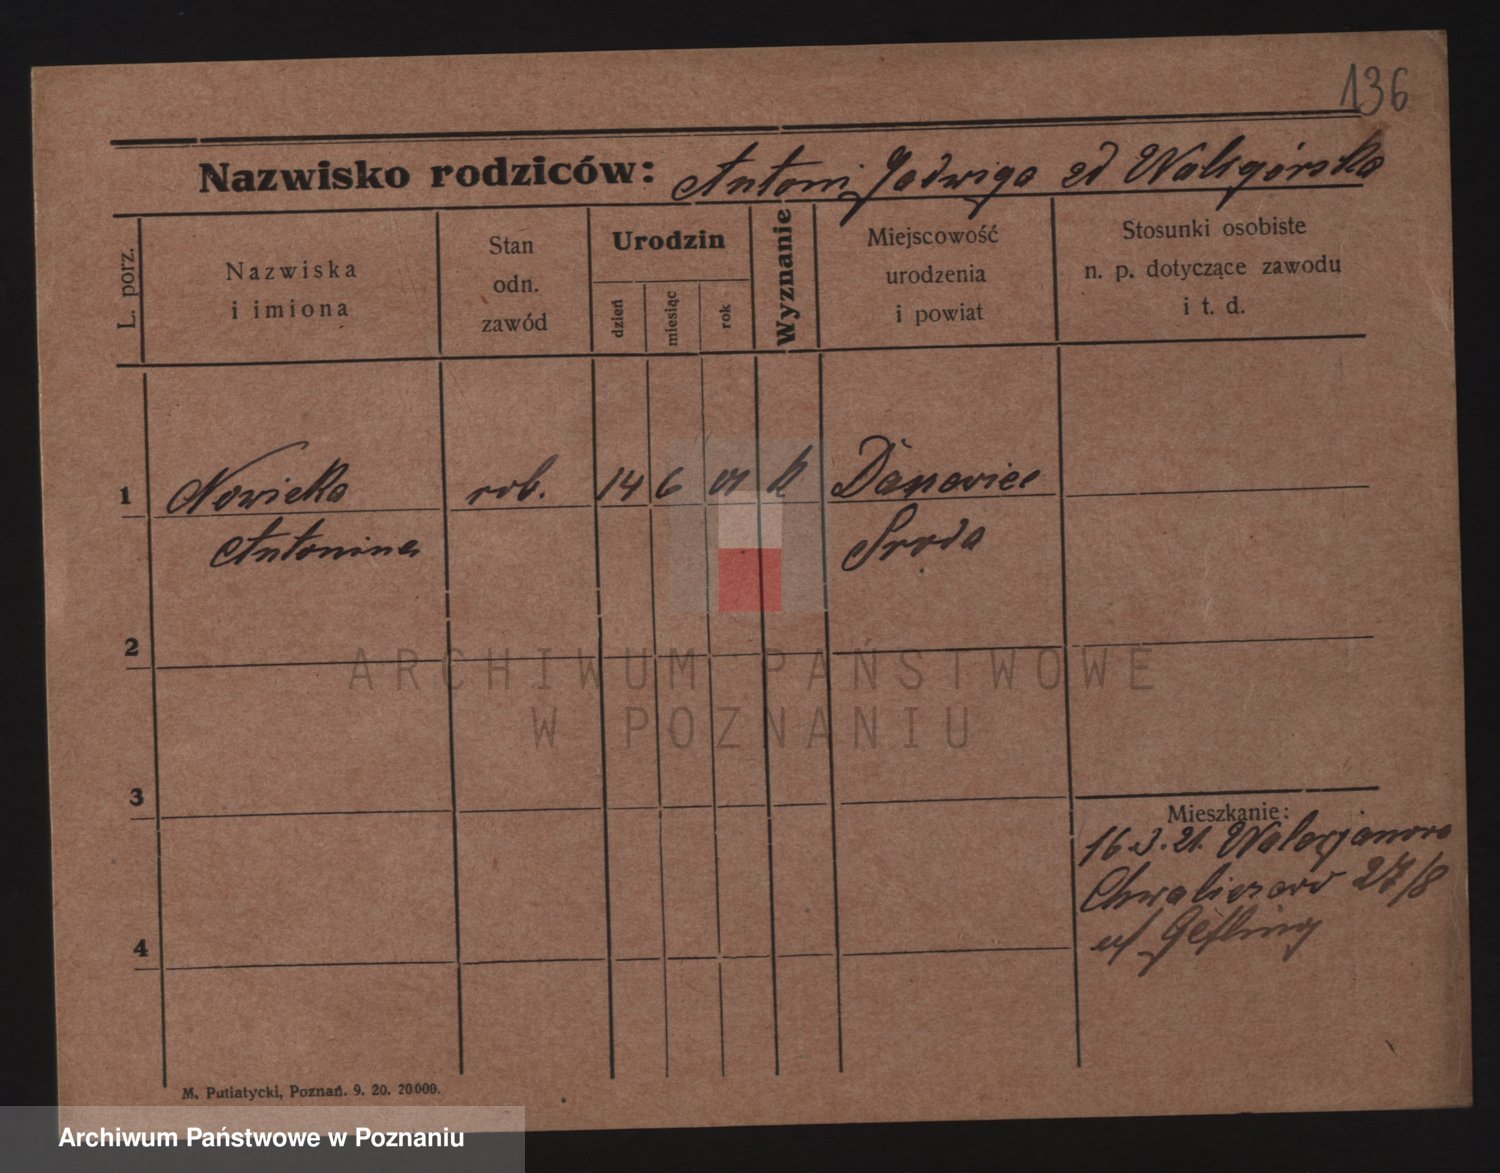 136
Nazwisko rodziców: Antoni Jadwiga zd Waligórska
L. porz.
Nazwiska
i imiona
Stan
odn.
zawód
Urodzin
dzień
miesiąc
rok
Wyznanie
Miejscowość
urodzenia
i powiat
Stosunki osobiste
n. p. dotyczące zawodu
i t. d.
1 Nowicka rob. 14 6 01 k
Antonina Środa
2
3
4
Mieszkanie:
16.
27/8
u/
M. Putiatycki, Poznań. 9. 20. 20000.
ARCHIWUM PAŃSTWOWE
W POZNANIU
Archiwum Państwowe w Poznaniu